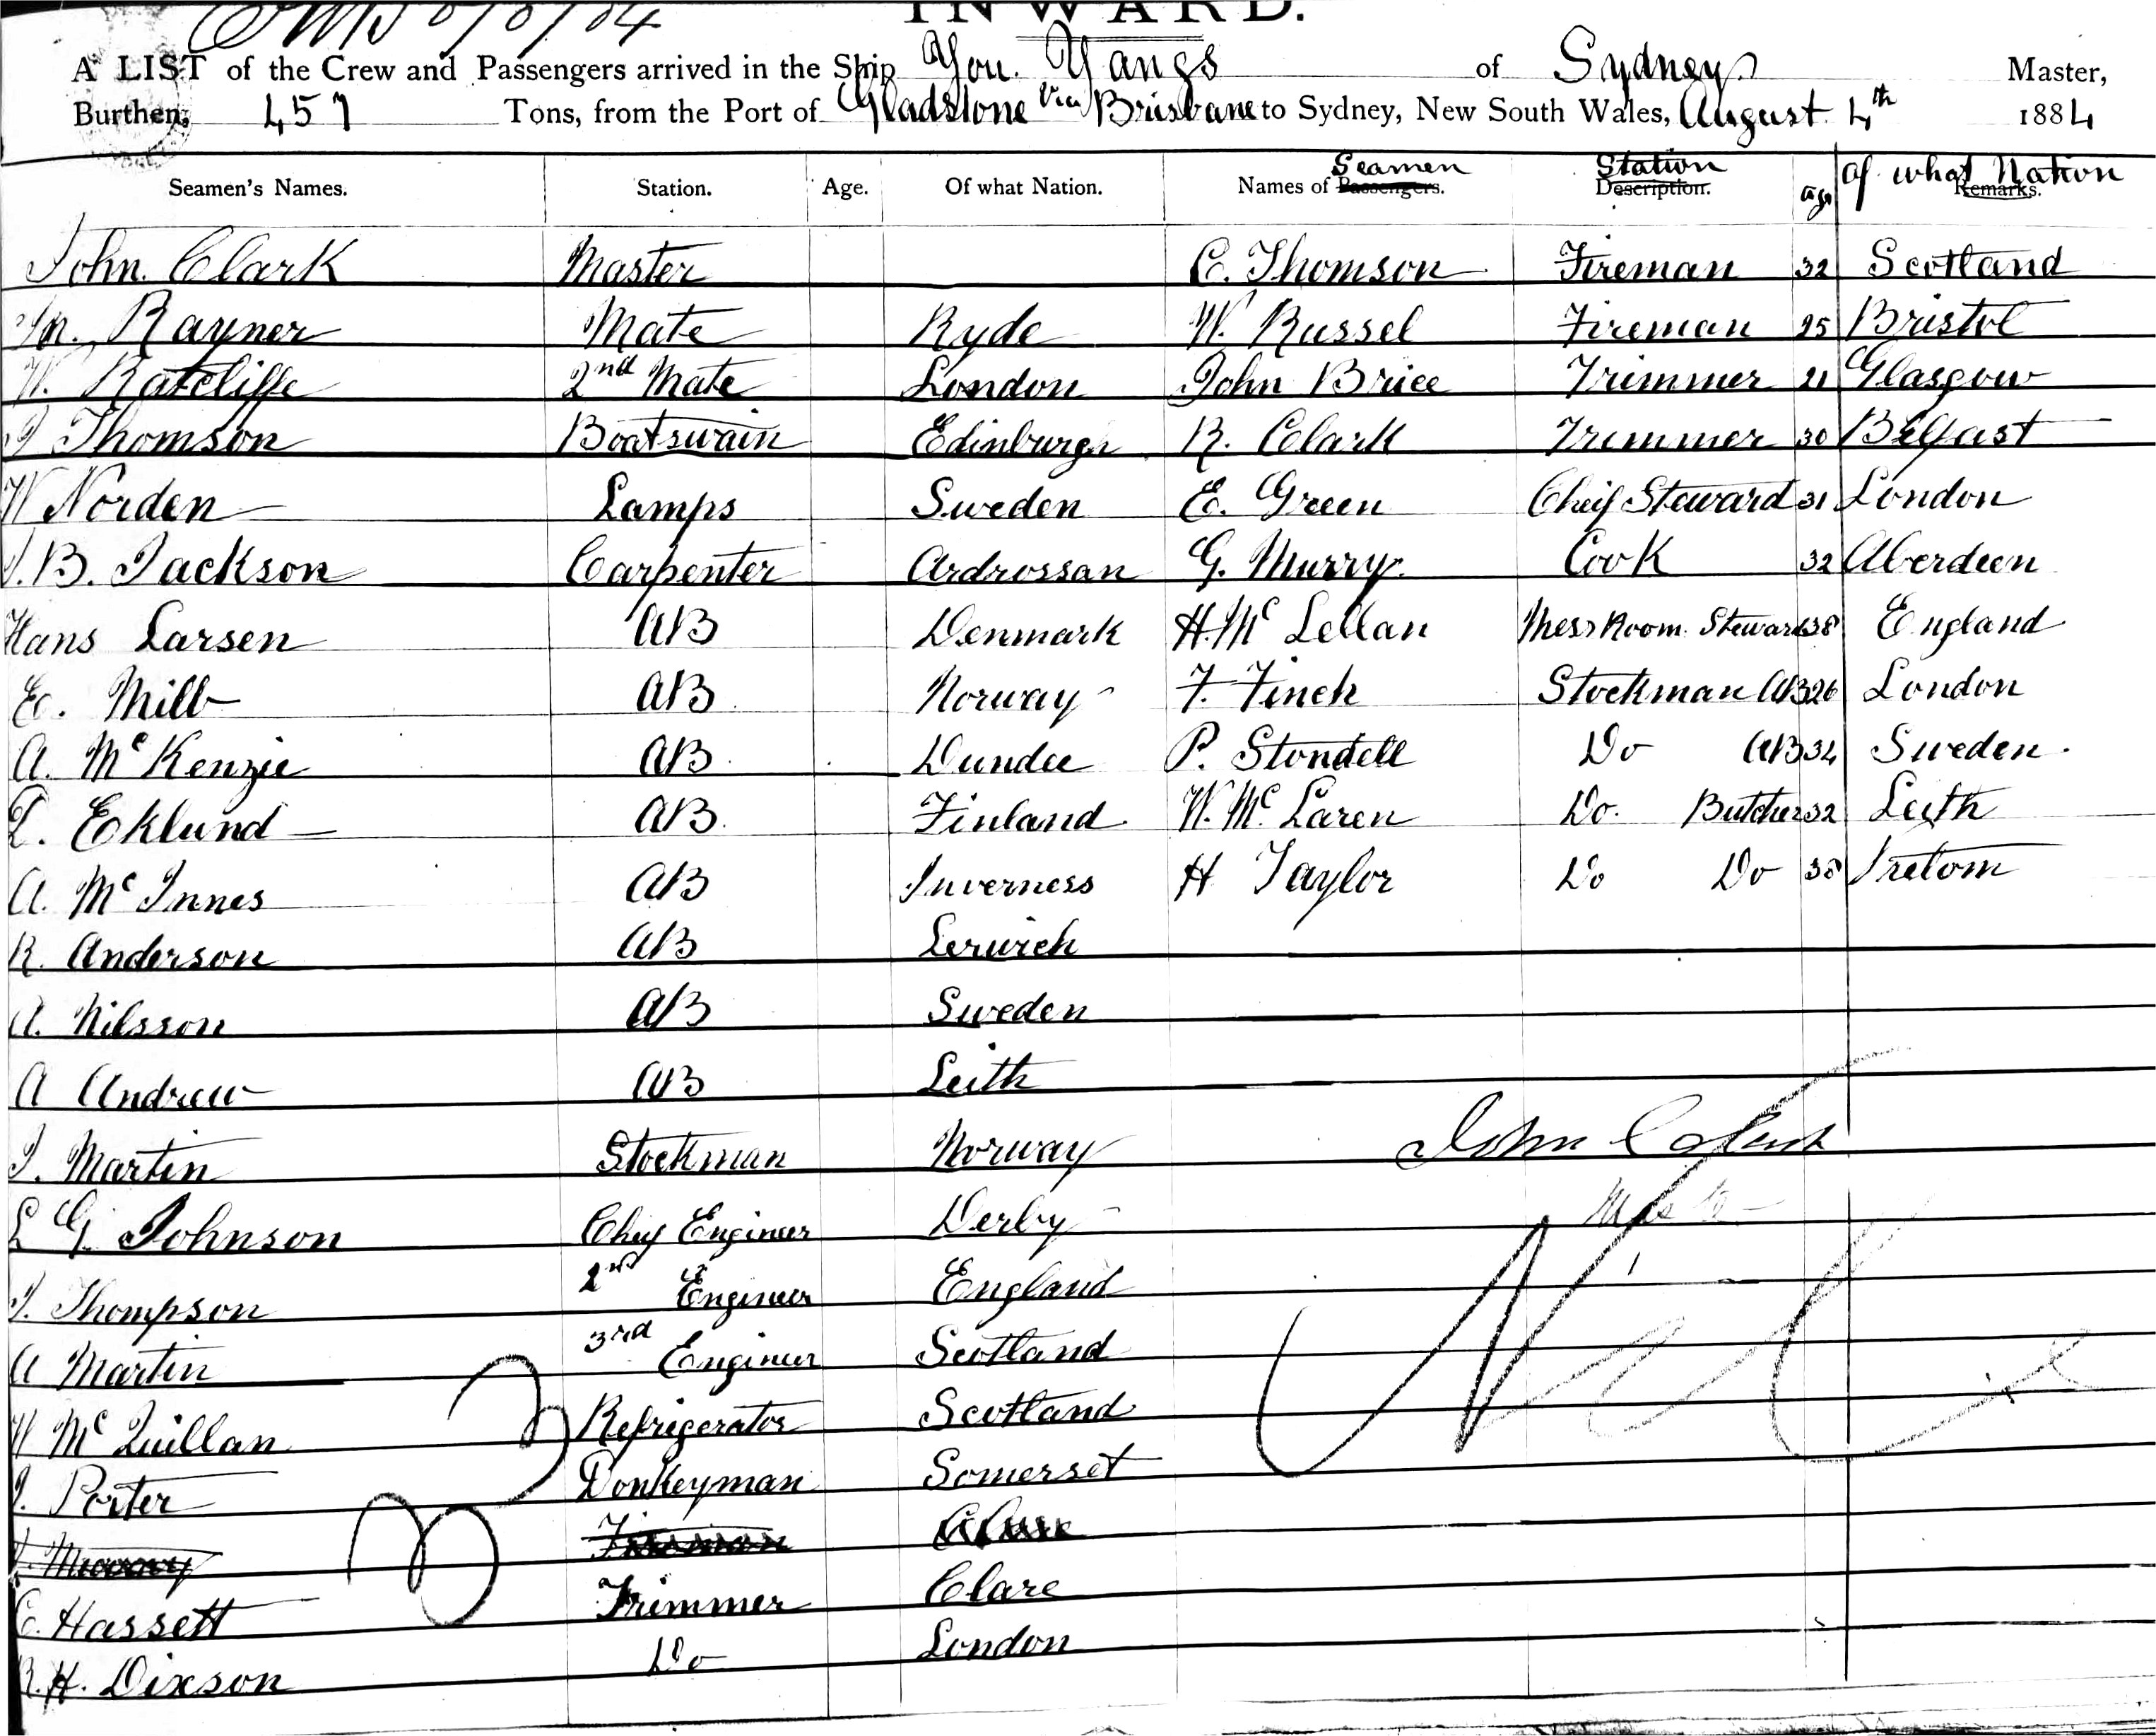 INWARD.
A LIST of the Crew and Passengers arrived in the Ship You Yangs of Sydney Master,
Burthen, 457 Tons, from the Port of Gladstone via Brisbane to Sydney, New South Wales, August 4th 1884
Seamen's Names. Station. Age. Of what Nation. Names of Passengers. Seamen Description. Station age Remarks. Of what Nation
John Clark Master C. Thomson Fireman 32 Scotland
Rayner Mate Ryde W. Russel Fireman 25 Bristol
W. Ratcliffe 2nd Mate London John Brice Trimmer 21 Glasgow
Thomson Boatswain Edinburgh R. Clark Trimmer 30 Belfast
W Norden Lamps Sweden E. Green Cheif Steward 31 London
J.B. Jackson Carpenter Ardrossan G. Murry Cook 32 Aberdeen
Hans Larsen AB Denmark H. Mc Lellan Mess Room Steward 38 England
E. Mill AB Norway F. Finch Stockman AB 26 London
A. Mc Kenzie AB Dundee P. Stondell Do AB 34 Sweden
Eklund AB Finland W. Mc Laren Do. Butcher 32 Leith
A. Mc Innes AB Inverness H Taylor Do Do 38
R. Anderson AB Lerwick
A. Nilsson AB Sweden
A Andrew AB Leith
J. Martin Stockman Norway
John Clark
L G Johnson Chief Engineer Derby
Master
J. Thompson 2nd Engineer England
A Martin 3rd Engineer Scotland
W Mc Quillan Refrigerator Scotland
J. Porter Donkeyman Somerset
Fireman Clare
E. Hassett Trimmer Clare
R.H. Dixson Do London